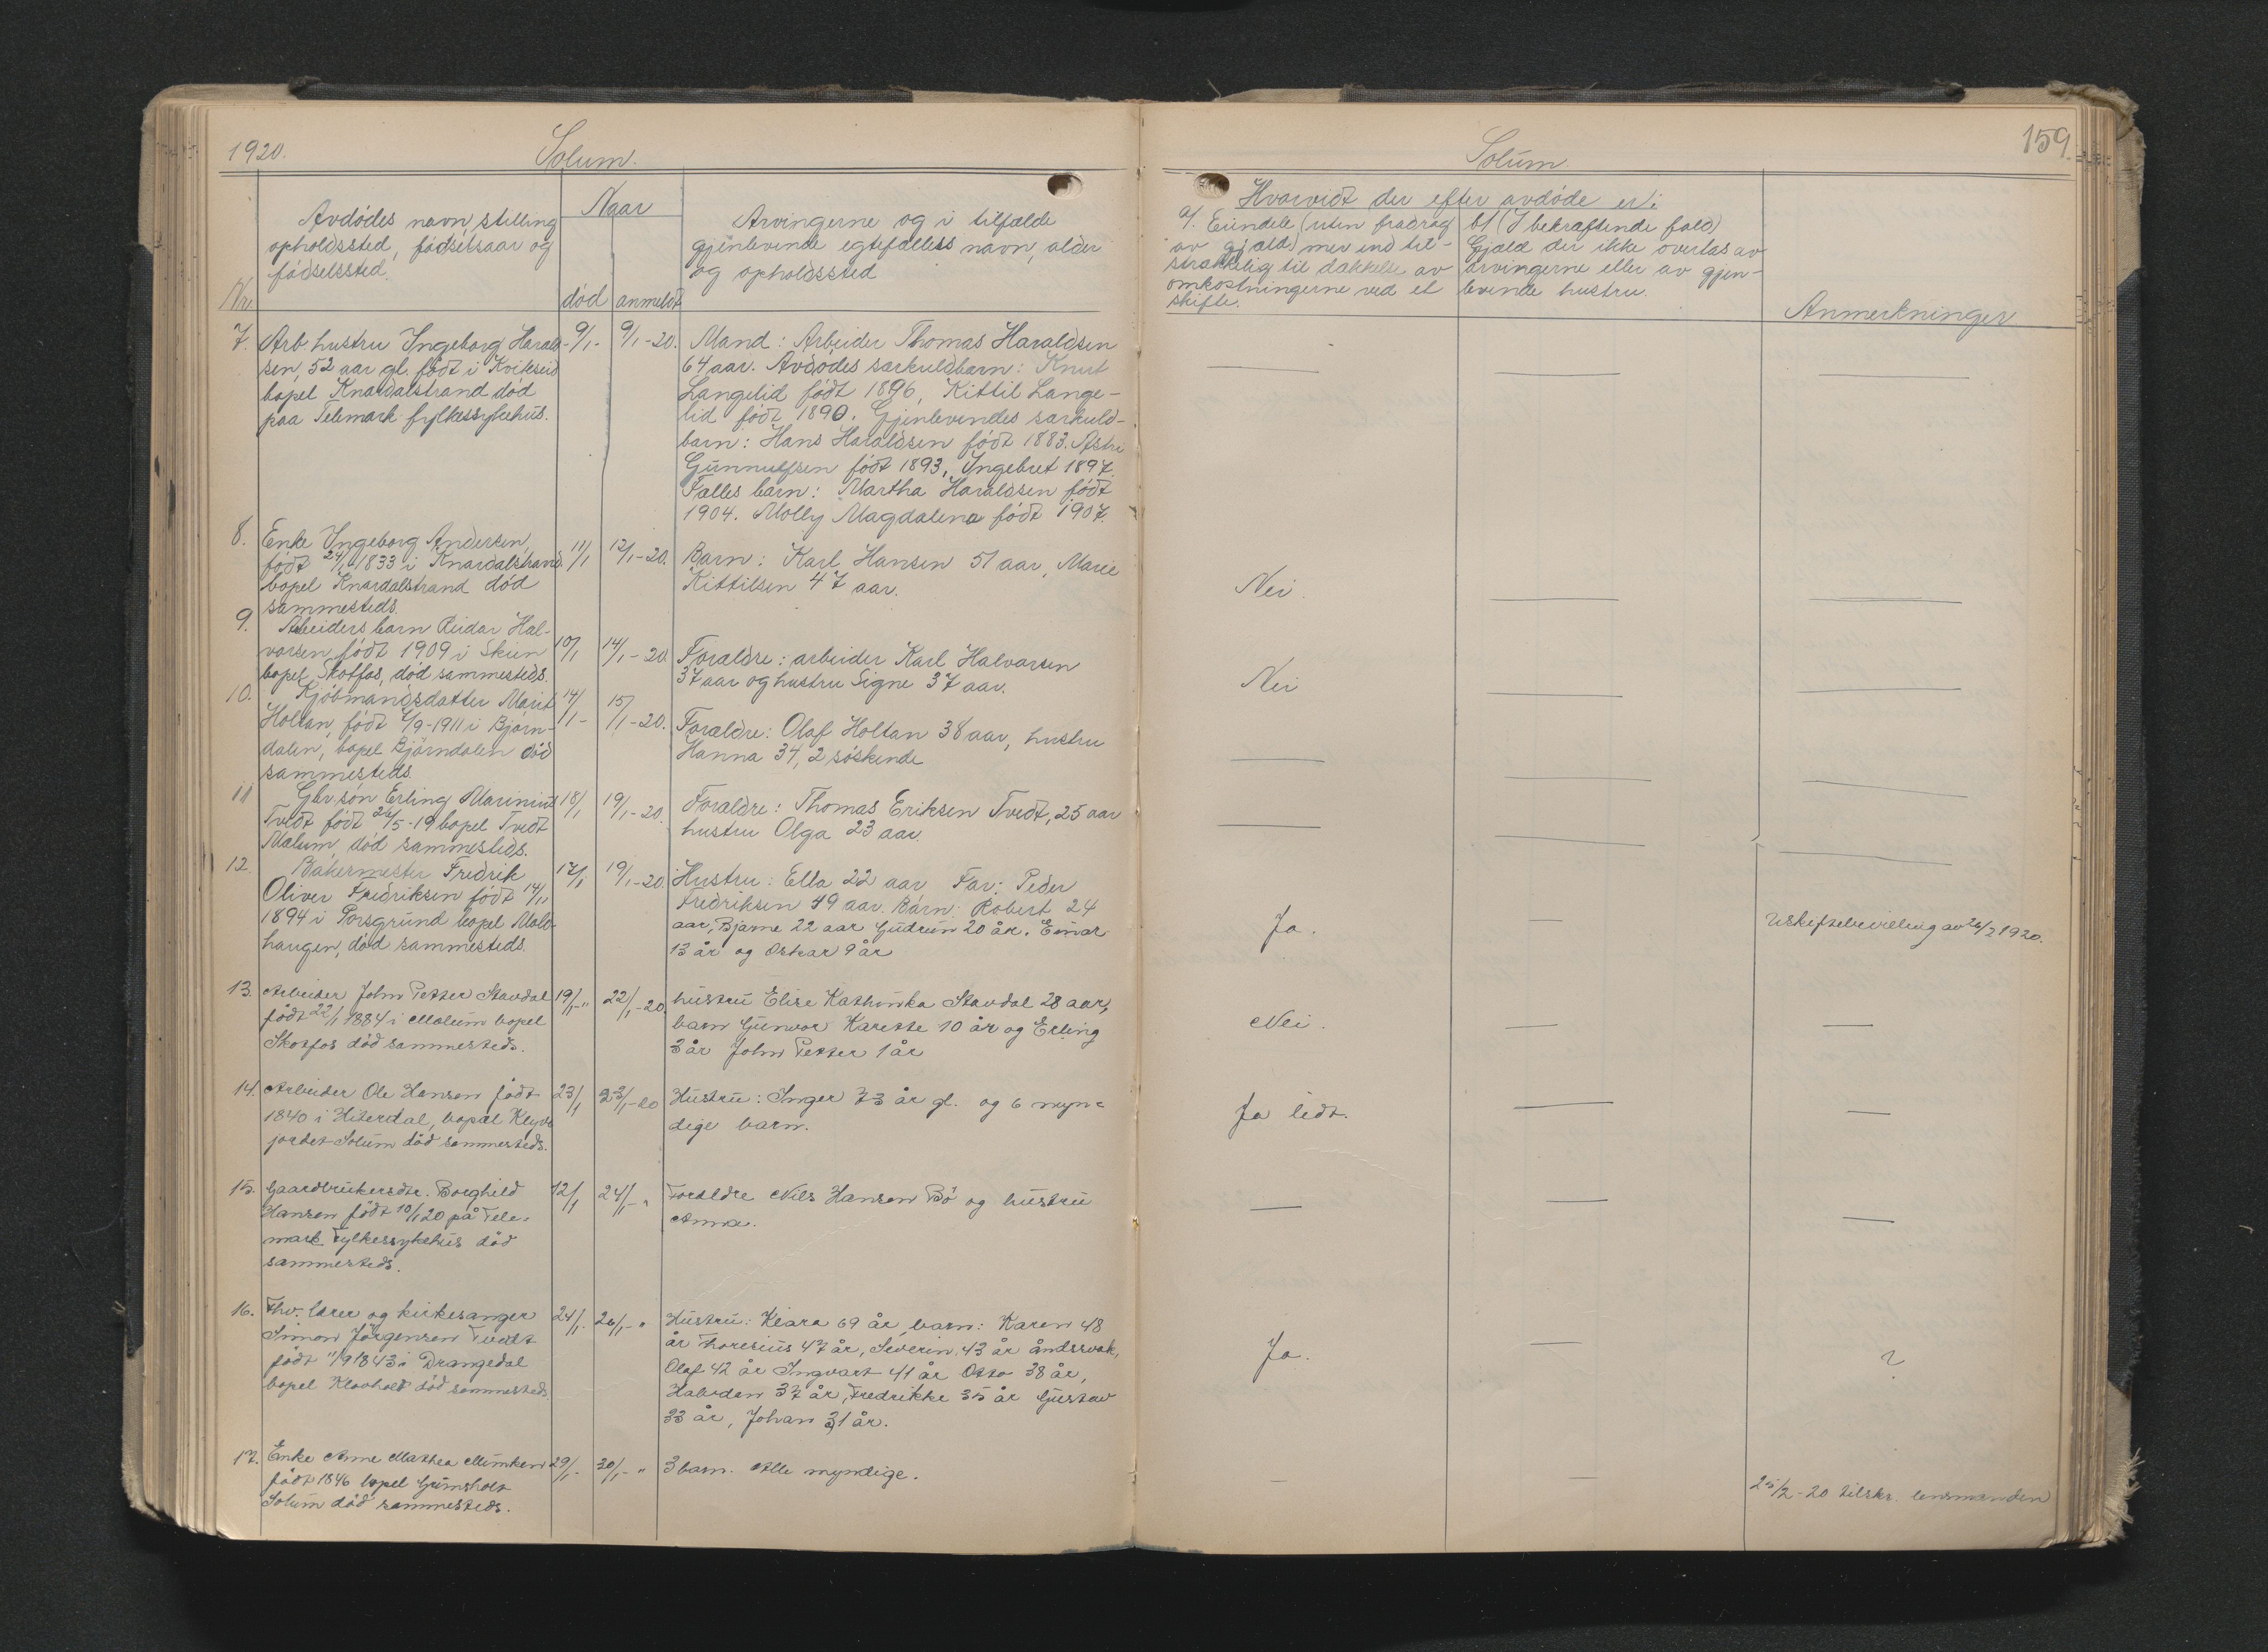 1920.
Solum.
Avdødes navn, stilling
opholdssted, fødselsaar og
fødselssted.
Nr.
Naar
død
anmeldt
Arvingerne og i tilfælde
gjenlevende egtefælles navn, alder
og opholdssted
7. Arb. hustru Ingeborg Harald- 9/1- 9/1-20. Mand: Arbeider Thomas Haraldsen
sen, 52 aar gl. født i Kviteseid 64 aar. Avdødes særkuldbarn: Knut
bopel Knardalstrand død Langelid født 1896, Kittil Lange-
paa Telemark fylkessykehus. lid født 1890. Gjenlevendes særkuld-
barn: Hans Haraldsen født 1883. Astri
Gunnulfsen født 1893, Ingebret 1897.
Fælles barn: Martha Haraldsen født
1904. Molly Magdalena født 1907.
8. Enke Ingeborg Andersen,
født 24/1 1833 i Knardalstrand 11/1 12/1-20. Barn: Karl Hansen 51 aar, Maree
bopel Knardalstrand død Kittilsen 47 aar.
sammesteds.
9. Arbeiders barn Reidar Hal-
vorsen født 1909 i Skien 10/1 14/1-20 Forældre: arbeider Karl Halvorsen
bopel Skotfos, død sammesteds. 37 aar og hustru Signe 37 aar.
10. Kjøbmandsdatter Marit 14/1- 15/1-20.
Holtan, født /9-1911 i Bjørn- Forældre: Olaf Holtan 38 aar, hustru
dalen, bopel Bjørndalen død Hanna 34, 2 søskende
sammesteds.
11 Gbr. søn Erling Marinius 18/1 19/1-20. Forældre: Thomas Eriksen Tvedt, 25 aar
Tvedt født 26/5-19 bopel Tvedt hustru Olga 23 aar.
Mælum død sammesteds.
12. Bakermester Fredrik 17/1 19/1-20. Hustru: Ella 22 aar Far: Peder
Oliver Fredriksen født 14/11 Fredriksen 49 aar. Barn: Robert 24
1894 i Porsgrund bopel Mold- aar, Bjarne 22 aar Gudrun 20 år. Einar
haugen, død sammesteds. 13 år og Oskar 9 år
13. Arbeider John Petter Stavdal 19/1-" 22/1-20. hustru Elise Kathinka Stavdal 28 aar,
født 22/1 1884 i Mælum bopel barn Gunvor Karette 10 år og Erling
Skotfos død sammesteds. 3 år John Petter 1 år
14. Arbeider Ole Hansen født 23/1 23/1-20 Hustru: Inger 73 år gl. og 6 myn-
1840 i Hiterdal, bopæl Klyve dige barn.
jordet Solum død sammesteds.
15. Gaardbrukersdtr. Borghild 12/1 24/1-" Foreldre Nils Hansen Bø og hustru
Hansen født 10/1 20 på Tele- Anna.
mark Fylkessykehus død
sammesteds.
16. Fhv. lærer og kirkesanger 24/1. 26/1-" Hustru: Klara 69 år, barn: Karen 48
Simon Jørgensen Tvedt år Thoresius 47 år, Severin 43 år åndssvak,
født 11/9 1843 i Drangedal Olaf 42 år Ingvart 41 år Otto 38 år,
bopel Klovholt død sammesteds. Halvdan 37 år, Fredrikke 35 år Gustav
33 år, Johan 31 år.
17. Enke Anne Mathea Munken 29/1- 30/1-" 3 barn. Alle myndige.
født 1846 bopel Gumsholt
Solum død sammesteds.
Solum
159.
Hvorvidt der efter avdøde er:
a/. Eiendele (uten fradrag
av gjæld) mer end til-
strækkelig til dækkelse av
omkostningerne ved et
skifte.
b/ (I bekræftende fald)
Gjæld der ikke overtas av
arvingerne eller av gjen-
levende hustru.
Anmerkninger
Nei.
Nei
Ja. Uskiftebevilling av 26/2 1920.
Nei.
Ja lidt.
Ja. ?
25/2-20 tilskr. lensmanden